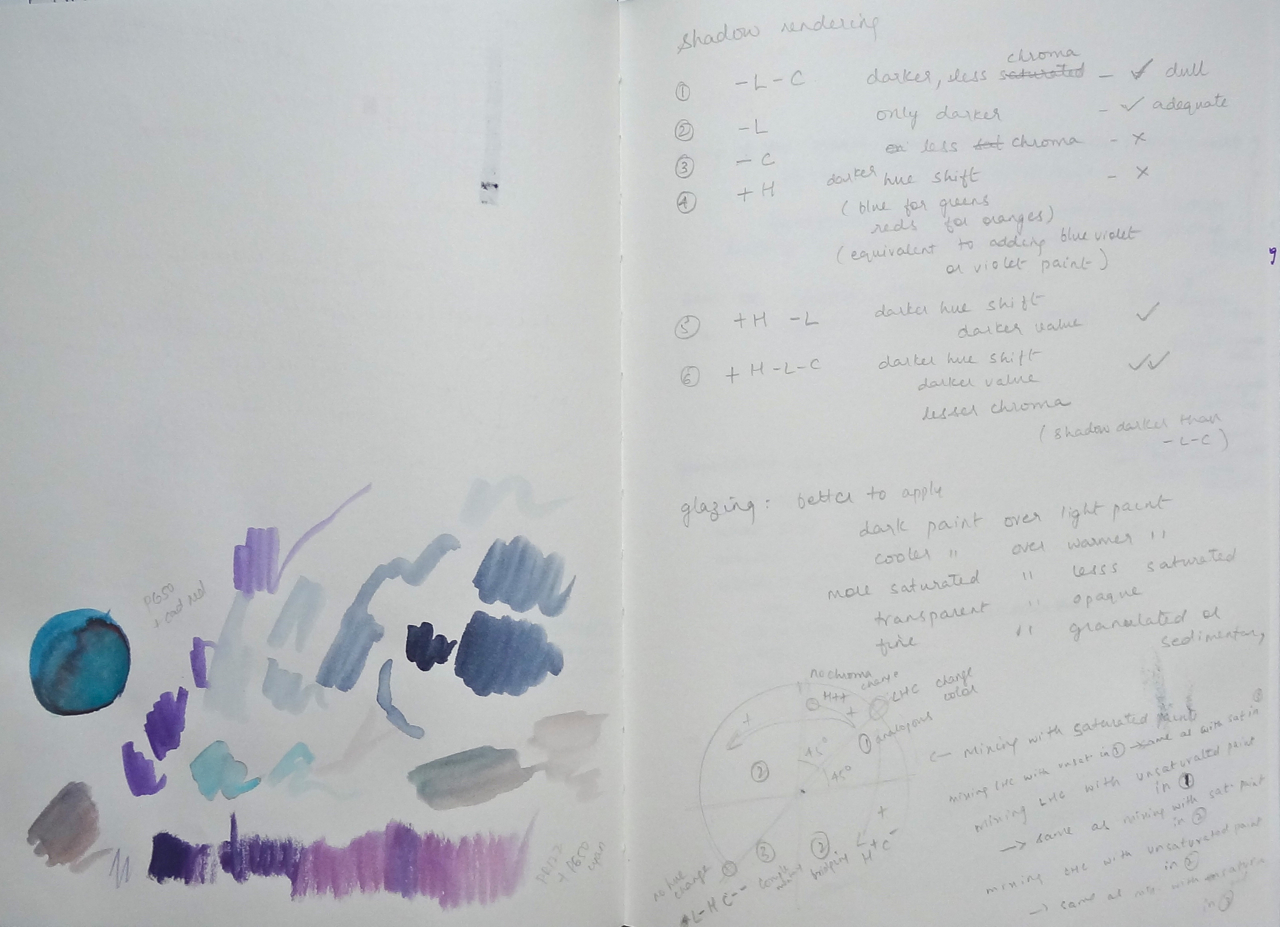 PG50
+ cad red
+ PG50
shadow rendering
① -L -C darker, less saturated chroma - ✓ dull
② -L only darker - ✓ adequate
③ -C less chroma - ×
④ +H darker hue shift - ×
(blue for greens
reds for oranges)
(equivalent to adding blue violet
or violet paint)
⑤ +H -L darker hue shift ✓
darker value
⑥ +H -L -C darker hue shift ✓✓
darker value
lesser chroma
(shadow darker than
-L-C)
glazing: better to apply
dark paint over light paint
cooler " over warmer "
more saturated " lesss saturated
transparent " opaque
fine " granulated or
sedimentary
no chroma
change
H++
LHC change
color
+
+
① analogous
45°
45°
②
+
H+C-
③
②
no hue
change
mixing with saturated paint
mixing LHC with unsat in ① same as with sat in ②
mixing LHC with unsaturated paint
in ①
→ same as mixing with sat. paint
in ②
mixing LHC with unsaturated paint
in ②
→ same as
in ③